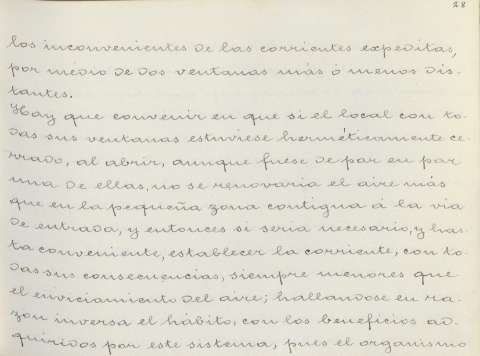 28
los inconvenientes de las corrientes expeditas,
por medio de dos ventanas más ó menos dis-
tantes.
Hay que convenir en que si el local con to-
das sus ventanas estuviese herméticamente ce-
rrado, al abrir, aunque fuese de par en par
una de ellas, no se renovaria el aire más
que en la pequeña zona contigua á la via
de entrada, y entonces si seria necesario, y has-
ta conveniente, establecer la corriente, con to-
das sus consecuencias, siempre menores que
el enviciamiento del aire; hallandose en ra-
zon inversa el hábito, con los beneficios ad-
quiridos por este sistema, pues el organismo